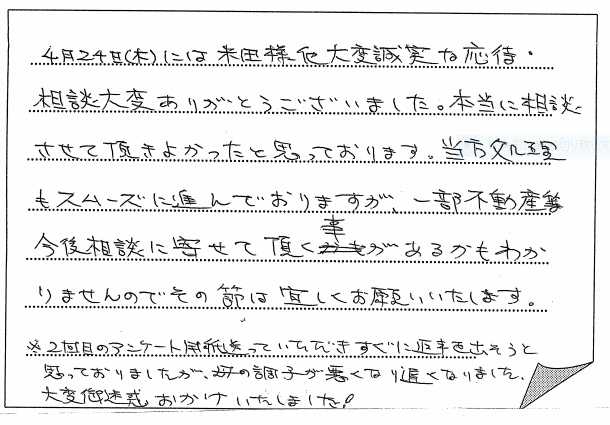 4月24日(木)には 米田様他大変誠実な応待・
相談大変ありがとうございました。本当に相談
させて頂きよかったと思っております。当方処理
もスムーズに進んでおりますが、一部不動産等
今後相談に寄せて頂く事があるかもわか
りませんのでその節は宜しくお願いいたします。
※2回目のアンケート用紙送っていただきすぐに返事を出そうと
思っておりましたが、の調子が悪くなり遅くなりました、
大変御迷惑おかけいたしました!